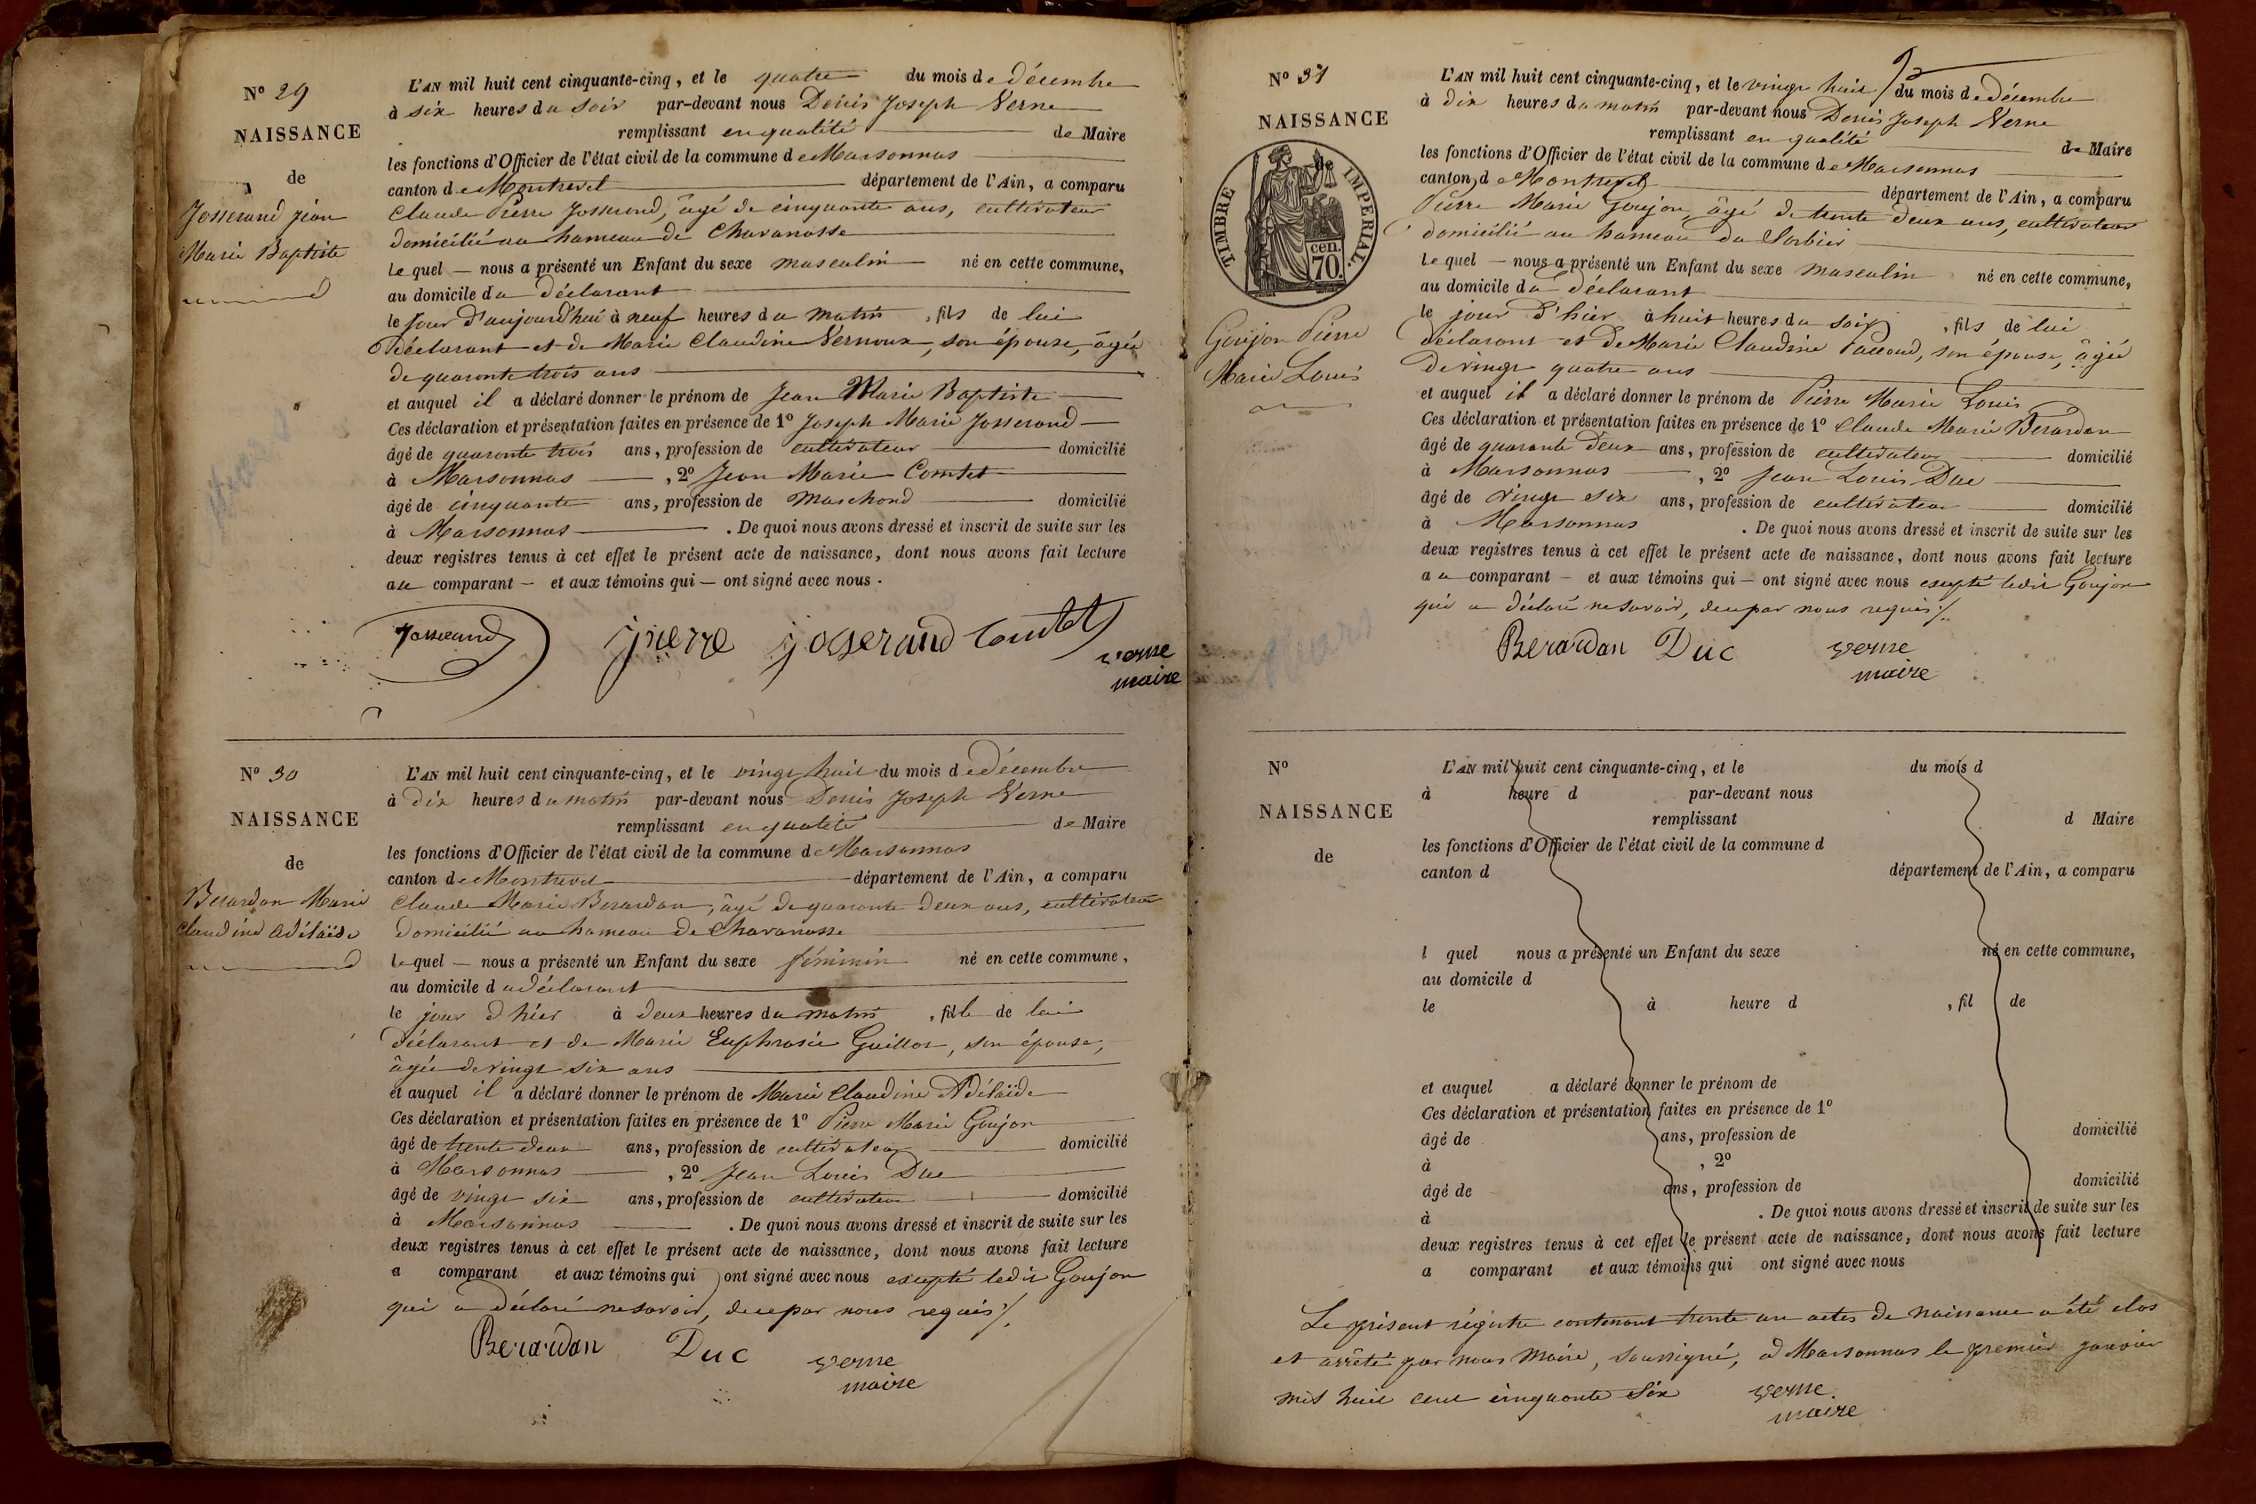 N° 29
NAISSANCE
de
Josserand Jean
Marie Baptiste
L'AN mil huit cent cinquante-cinq, et le quatre du mois de décembre
à six heures du soir par-devant nous Denis Joseph Verne
remplissant en qualité de Maire
les fonctions d'Officier de l'état civil de la commune de Marsonnas
canton de Montrevel département de l'Ain, a comparu
Claude Pierre Josserand, âgé de cinquante ans, cultivateur
domicilié au hameau de Chavanosse
lequel — nous a présenté un Enfant du sexe masculin né en cette commune,
au domicile du déclarant
le jour d'aujourd'hui à neuf heures du matin, fils de lui
Déclarant et de Marie Claudine Vernoux, son épouse, âgée
de quarante trois ans
et auquel il a déclaré donner le prénom de Jean Marie Baptiste
Ces déclaration et présentation faites en présence de 1° Joseph Marie Josserand
âgé de quarante trois ans, profession de cultivateur domicilié
à Marsonnas, 2° Jean Marie Comtet
âgé de cinquante ans, profession de marchand domicilié
à Marsonnas. De quoi nous avons dressé et inscrit de suite sur les
deux registres tenus à cet effet le présent acte de naissance, dont nous avons fait lecture
au comparant — et aux témoins qui — ont signé avec nous.
Josserand pierre josserand Comtet verne
maire
N° 30
NAISSANCE
de
Berardan Marie
Claudine Adélaïde
L'AN mil huit cent cinquante-cinq, et le vingt huit du mois de décembre
à dix heures du matin par-devant nous Denis Joseph Verne
remplissant en qualité de Maire
les fonctions d'Officier de l'état civil de la commune de Marsonnas
canton de Montrevel département de l'Ain, a comparu
Claude Marie Berardan, âgé de quarante deux ans, cultivateur
domicilié au hameau de Chavanosse
lequel — nous a présenté un Enfant du sexe féminin né en cette commune,
au domicile du déclarant
le jour d'hier à deux heures du matin, fille de lui
déclarant et de Marie Euphrosie Guillot, son épouse,
âgée de vingt six ans
et auquel il a déclaré donner le prénom de Marie Claudine Adélaïde
Ces déclaration et présentation faites en présence de 1° Pierre Marie Goujon
âgé de trente deux ans, profession de cultivateur domicilié
à Marsonnas, 2° Jean Louis Duc
âgé de vingt six ans, profession de cultivateur domicilié
à Marsonnas. De quoi nous avons dressé et inscrit de suite sur les
deux registres tenus à cet effet le présent acte de naissance, dont nous avons fait lecture
a comparant et aux témoins qui ont signé avec nous excepté ledit Goujon
qui a déclaré ne savoir, de ce par nous requis ./.
Berardan Duc verne
maire
N° 31
NAISSANCE
de
TIMBRE IMPERIAL.
cen.
70.
Goujon Pierre
Marie Louis
L'AN mil huit cent cinquante-cinq, et le vingt huit du mois de décembre
à dix heures du matin par-devant nous Denis Joseph Verne
remplissant en qualité de Maire
les fonctions d'Officier de l'état civil de la commune de Marsonnas
canton de Montrevel département de l'Ain, a comparu
Pierre Marie Goujon, âgé de trente deux ans, cultivateur
domicilié au hameau du Sorbier
lequel — nous a présenté un Enfant du sexe masculin né en cette commune,
au domicile du déclarant
le jour d'hier à huit heures du soir, fils de lui
déclarant et de Marie Claudine Paccoud, son épouse, âgée
de vingt quatre ans
et auquel il a déclaré donner le prénom de Pierre Marie Louis
Ces déclaration et présentation faites en présence de 1° Claude Marie Berardan
âgé de quarante deux ans, profession de cultivateur domicilié
à Marsonnas, 2° Jean Louis Duc
âgé de vingt six ans, profession de cultivateur domicilié
à Marsonnas. De quoi nous avons dressé et inscrit de suite sur les
deux registres tenus à cet effet le présent acte de naissance, dont nous avons fait lecture
au comparant — et aux témoins qui — ont signé avec nous excepté ledit Goujon
qui a déclaré ne savoir, de ce par nous requis ./.
Berardan Duc verne
maire
N°
NAISSANCE
de
L'AN mil huit cent cinquante-cinq, et le du mois d
à heure d par-devant nous
remplissant d Maire
les fonctions d'Officier de l'état civil de la commune d
canton d département de l'Ain, a comparu
l quel nous a présenté un Enfant du sexe né en cette commune,
au domicile d
le à heure d , fil de
et auquel a déclaré donner le prénom de
Ces déclaration et présentation faites en présence de 1°
âgé de ans, profession de domicilié
à , 2°
âgé de ans, profession de domicilié
à . De quoi nous avons dressé et inscrit de suite sur les
deux registres tenus à cet effet le présent acte de naissance, dont nous avons fait lecture
a comparant et aux témoins qui ont signé avec nous
Le présent régistre contenant trente un actes de naissance a été clos
et arrêté par nous Maire, soussigné, à Marsonnas le premier janvier
mil huit cent cinquante six verne
maire